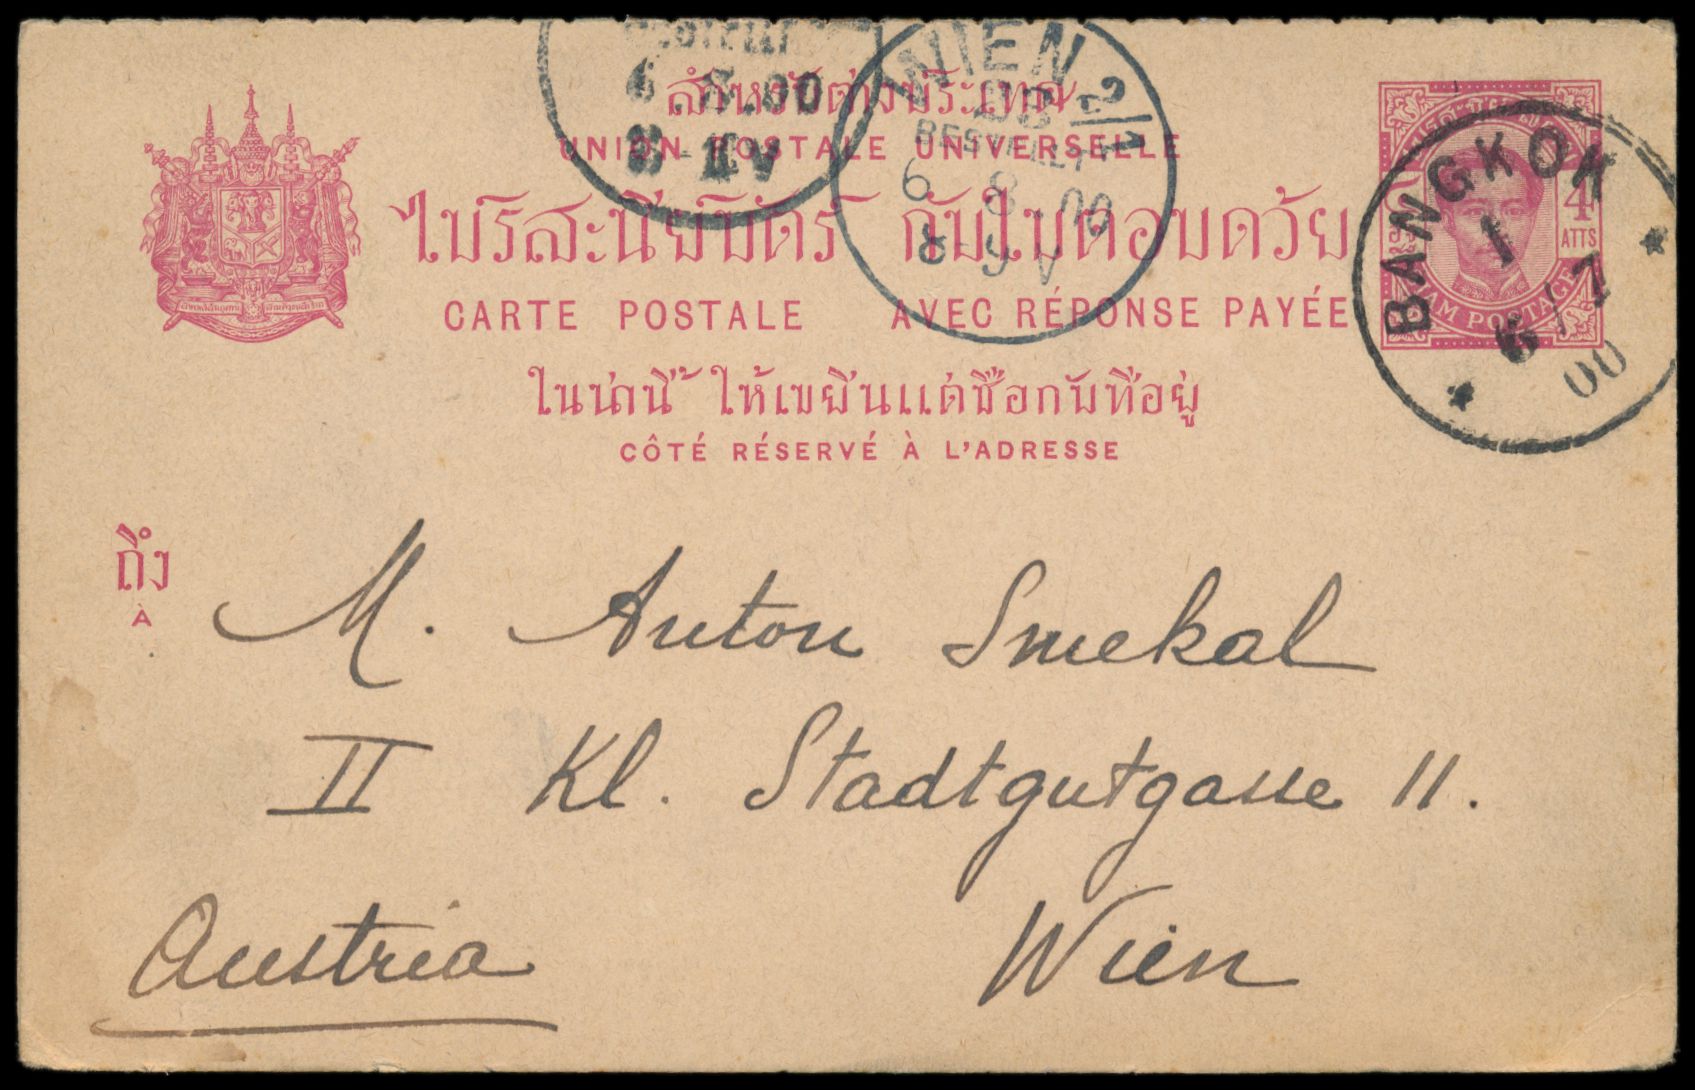 สำหรับต่างประเทศ
UNION POSTALE UNIVERSELLE
ไปรสะนียบัตร์ กับใบตอบด้วย
CARTE POSTALE AVEC RÉPONSE PAYÉE
ในน่านี้ ให้เขยีนแต่ชื่อกับที่อยู่
CÔTÉ RÉSERVÉ À L'ADRESSE
4
ATTS
SIAM POSTAGE
BANGKOK
1
6/7
00
WIEN 2/1
BESTELLT
6 8 00
8-9 V
ถึง
À
M. Anton Smekal
II Kl. Stadtgutgasse 11.
Austria Wien